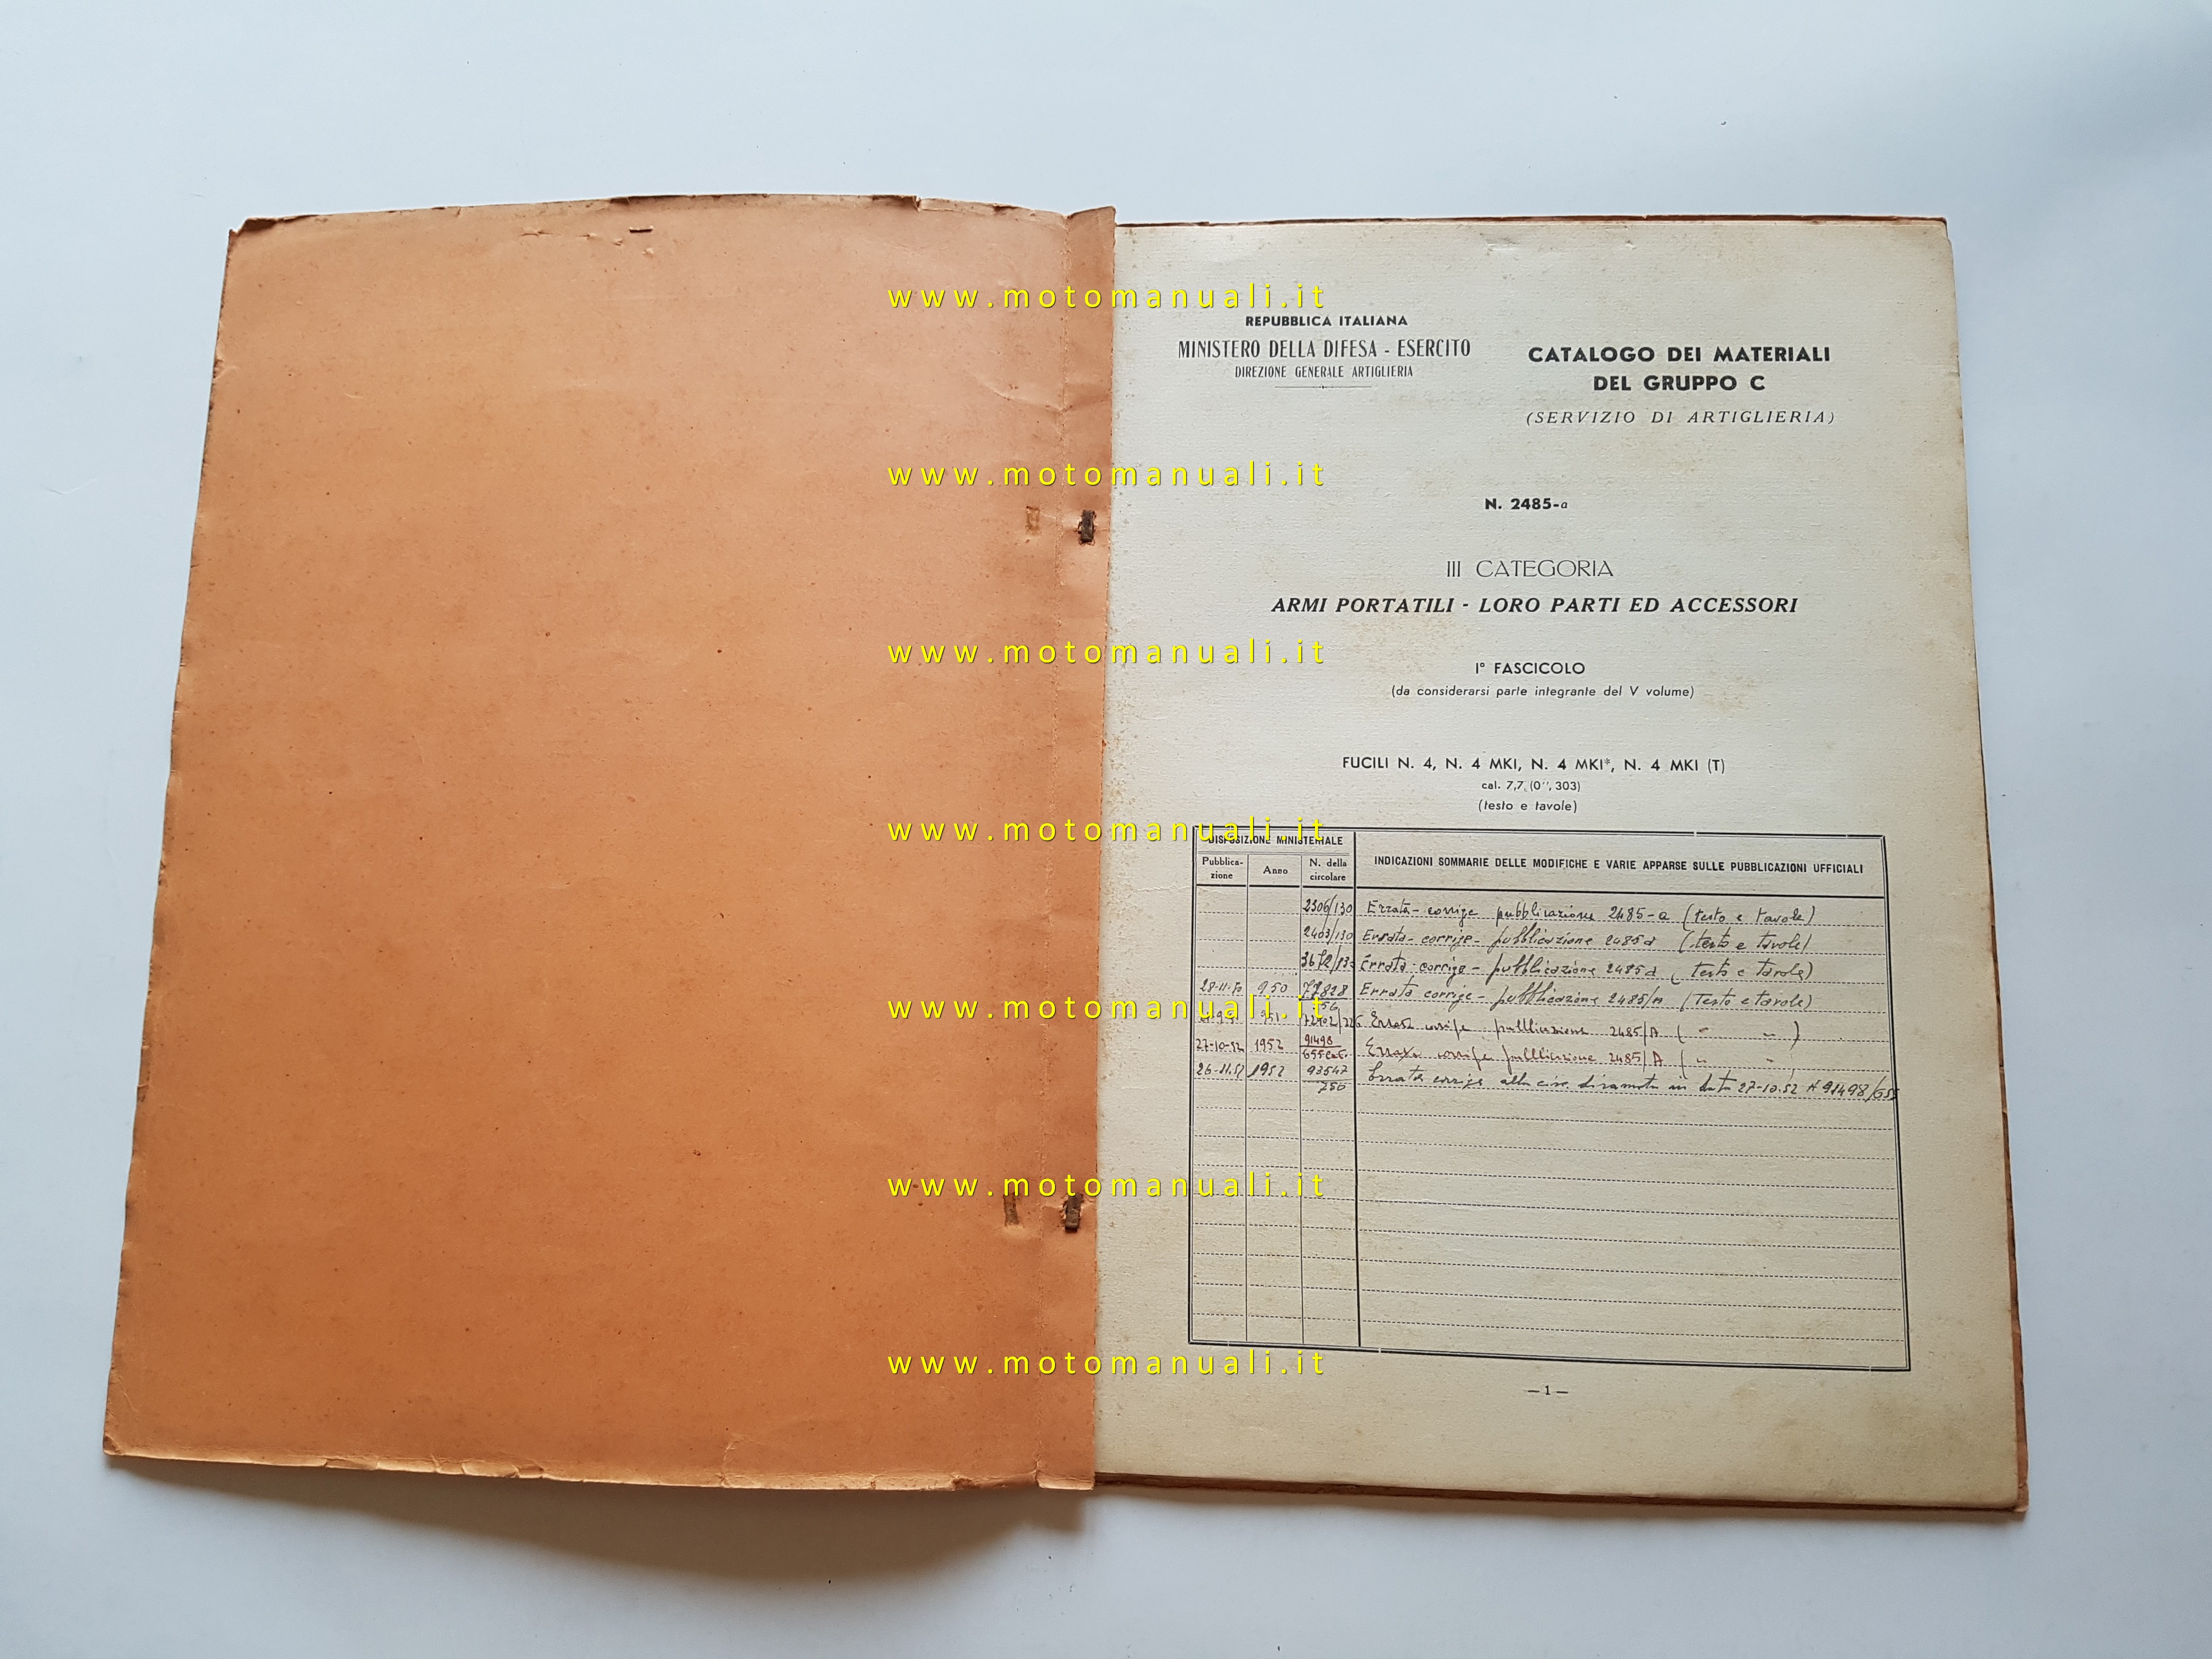 www.motomanuali.it
REPUBBLICA ITALIANA
MINISTERO DELLA DIFESA - ESERCITO
DIREZIONE GENERALE ARTIGLIERIA
CATALOGO DEI MATERIALI
DEL GRUPPO C
(SERVIZIO DI ARTIGLIERIA)
www.motomanuali.it
N. 2485-a
III CATEGORIA
ARMI PORTATILI - LORO PARTI ED ACCESSORI
www.motomanuali.it
I° FASCICOLO
(da considerarsi parte integrante del V volume)
FUCILI N. 4, N. 4 MKI, N. 4 MKI*, N. 4 MKI (T)
cal. 7,7 (0'', 303)
(testo e tavole)
www.motomanuali.it
DISPOSIZIONE MINISTERIALE
Pubblica-
zione
Anno
N. della
circolare
INDICAZIONI SOMMARIE DELLE MODIFICHE E VARIE APPARSE SULLE PUBBLICAZIONI UFFICIALI
2306/130 Errata-corrige pubblicazione 2485-a (testo e tavole)
2403/130 Errata-corrige-pubblicazione 2485a (testo e tavole)
Errata-corrige-pubblicazione 2485a (testo e tavole)
28-11-50 950 Errata corrige-pubblicazione 2485/A (Testo e tavole)
www.motomanuali.it
951 Errata corrige pubblicazione 2485/A ( " " )
27-10-52 1952 91498 Errata corrige pubblicazione 2485/A ( " "
26-11-52 1952 93547 Errata corrige alla circ. diramata in data 27-10-52 N 91498/655
250
www.motomanuali.it
www.motomanuali.it
— 1 —